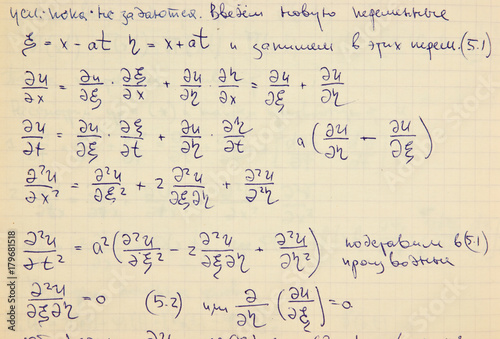 усл. пока не задаются. Введём новую переменные
ξ = x - at η = x + at и запишем в этих перем. (5.1)
∂u/∂x = ∂u/∂ξ · ∂ξ/∂x + ∂u/∂η · ∂η/∂x = ∂u/∂ξ + ∂u/∂η
∂u/∂t = ∂u/∂ξ · ∂ξ/∂t + ∂u/∂η · ∂η/∂t a(∂u/∂η - ∂u/∂ξ)
∂²u/∂x² = ∂²u/∂ξ² + 2 ∂²u/∂ξ∂η + ∂²u/∂²η
∂²u/∂t² = a²(∂²u/∂ξ² - 2 ∂²u/∂ξ∂η + ∂²u/∂η²) подставим в (5.1)
производные
∂²u/∂ξ∂η = 0 (5.2) или ∂/∂η (∂u/∂ξ) = 0
Adobe Stock | #179681518